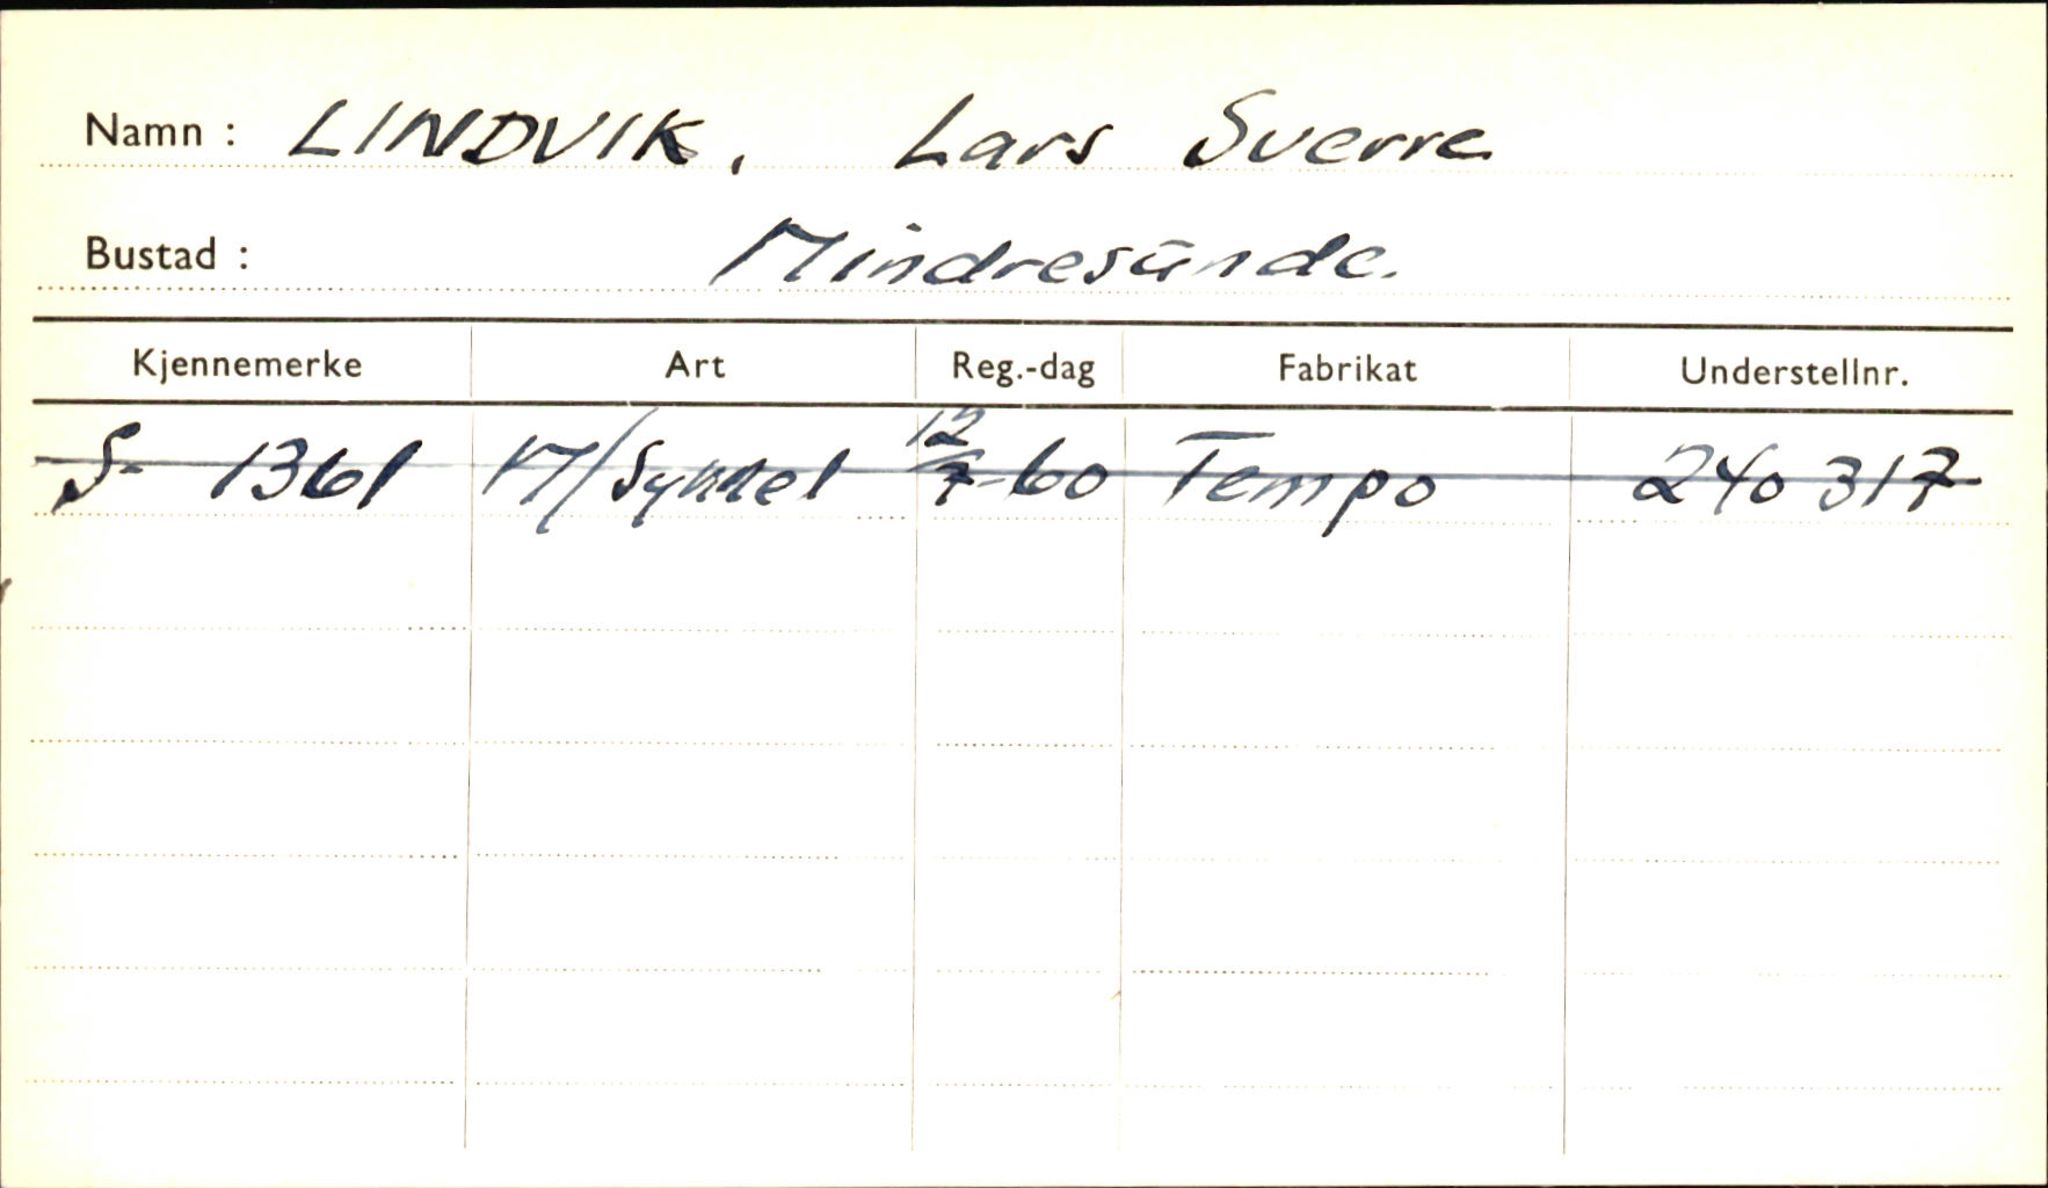 Namn : LINDVIK, Lars Sverre
Bustad : Mindresunde.
Kjennemerke Art Reg.-dag Fabrikat Understellnr.
S- 1361 M/Sykkel 12/7-60 Tempo 240 317